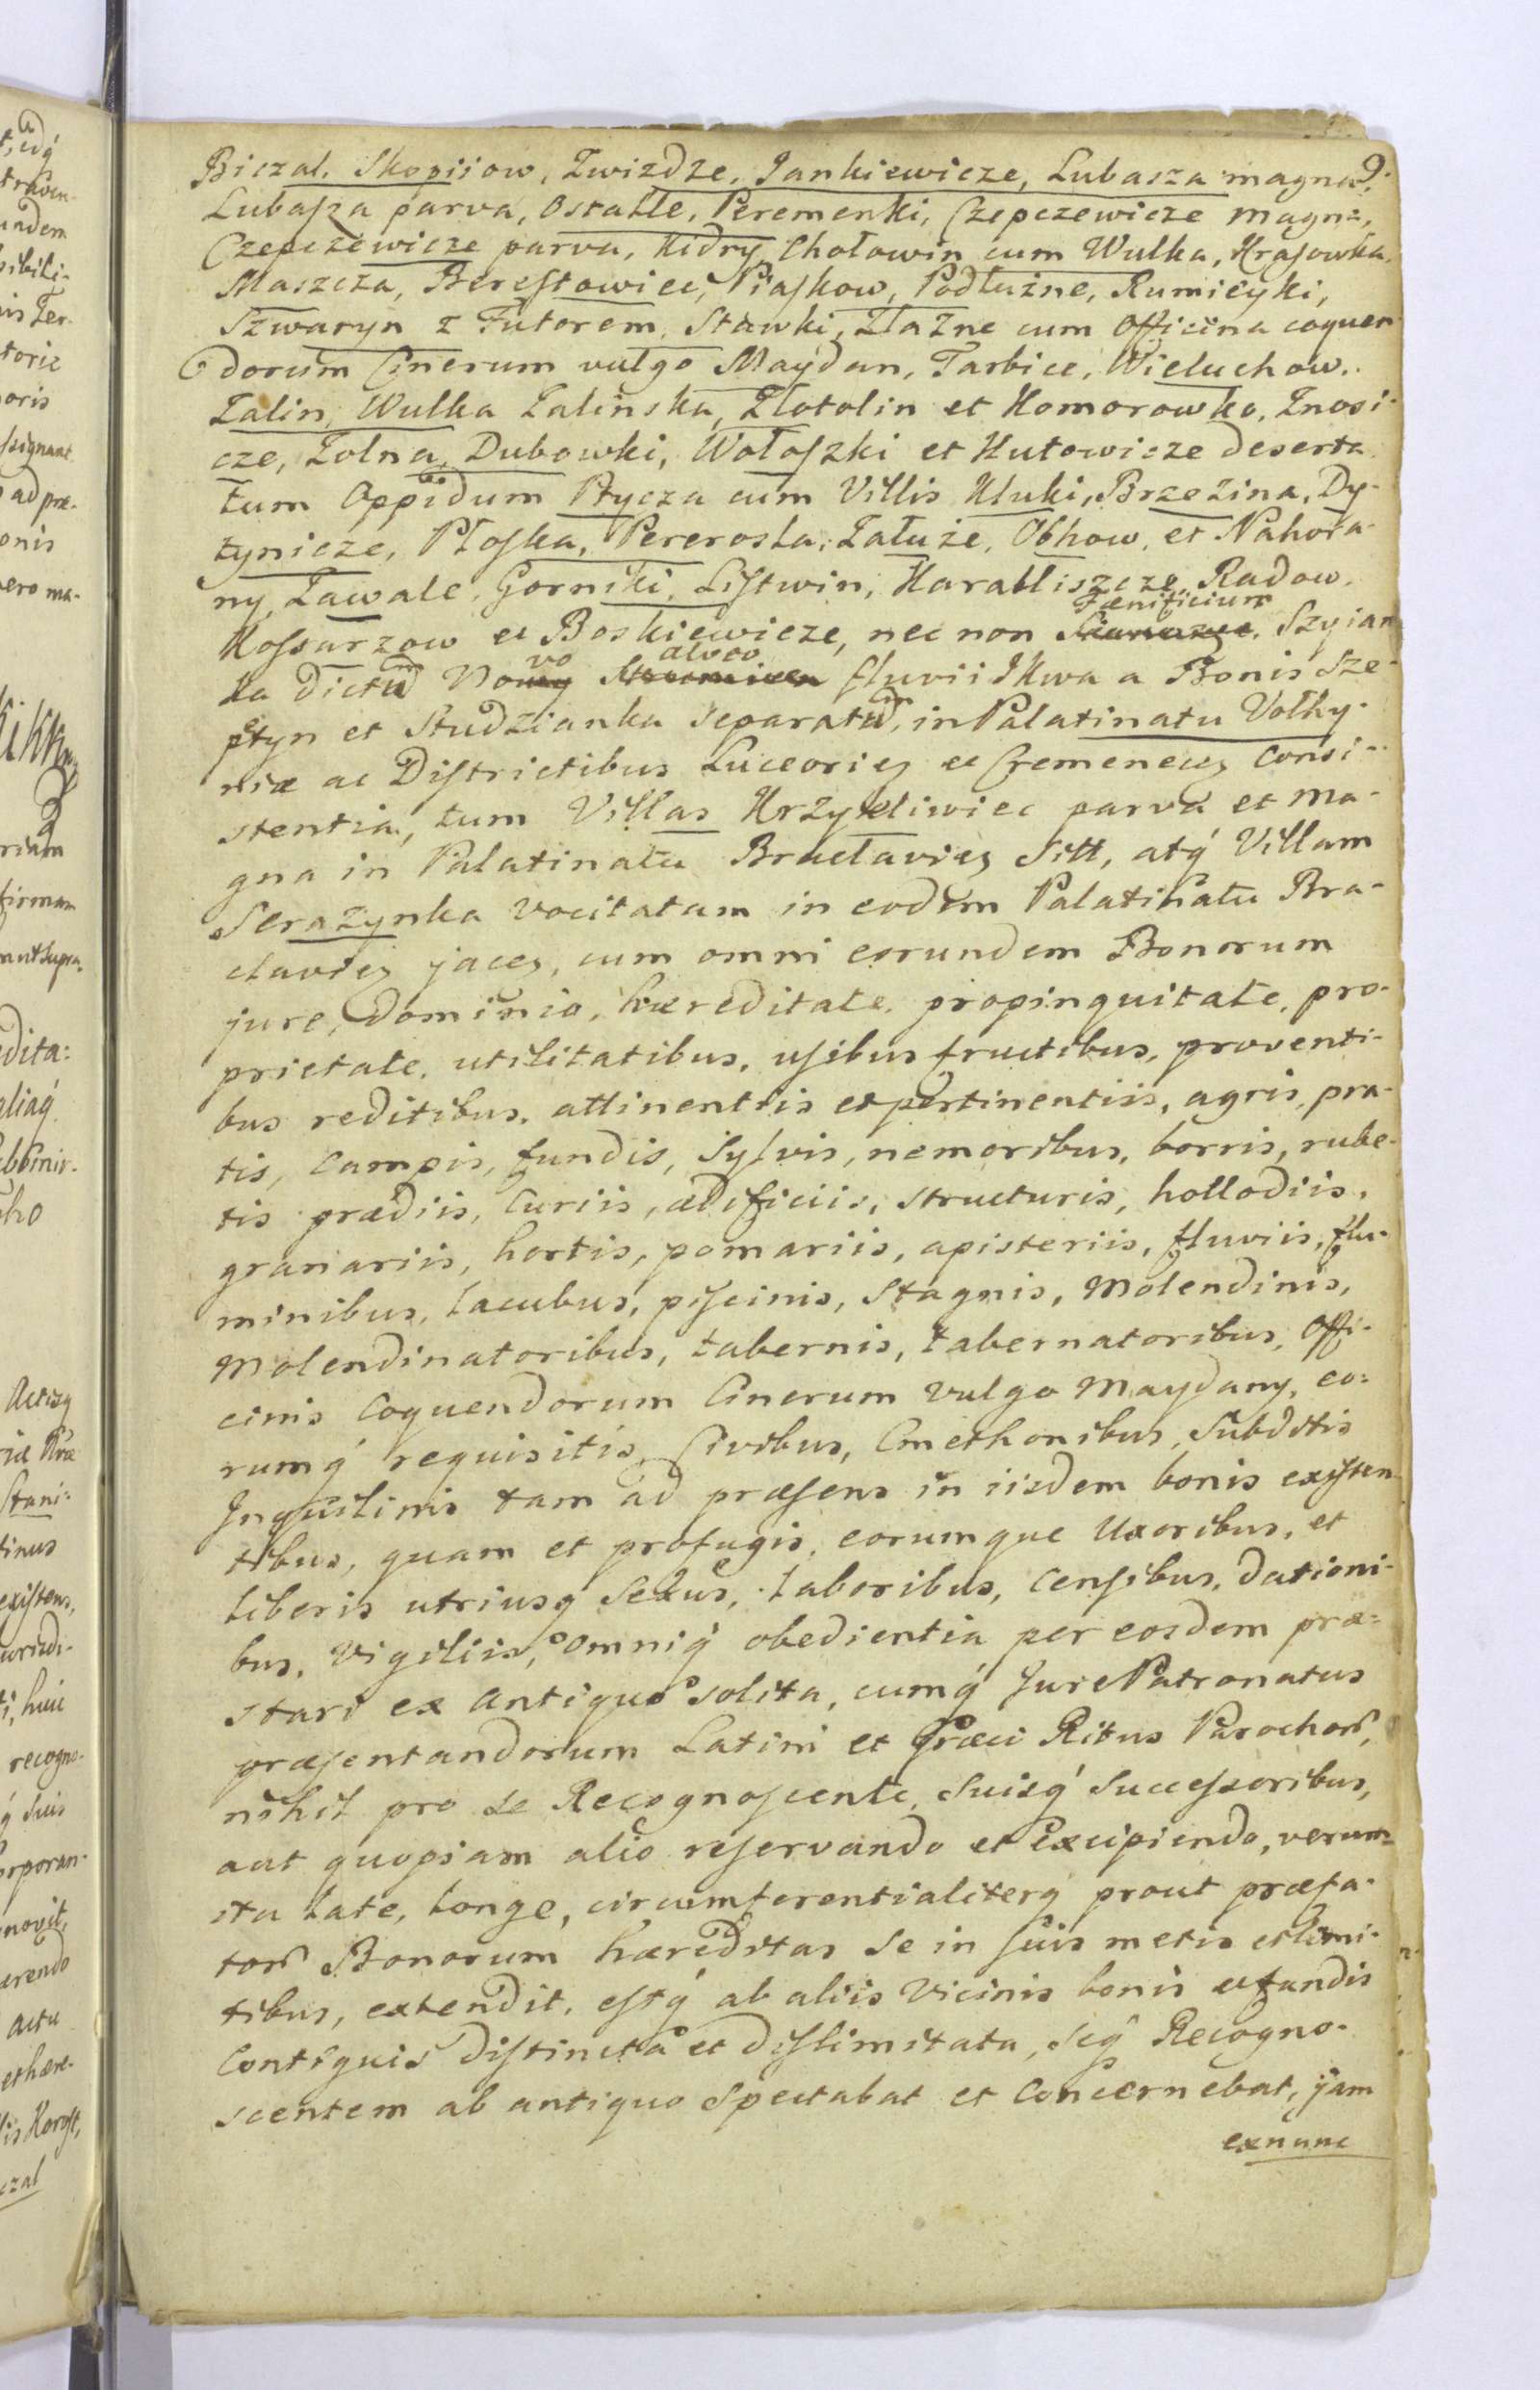 9.
Biczal, Skopiiow, Zwizdze, Jankiewicze, Lubasza magna,
Lubasza parva, Ostatle, Peremenki, Czepczewicze magna,
Czepczewicze parva, Kidry, Chołowin cum Wulka, Krasowka,
Maszcza, Berestowiec, Piaskow, Podłużne, Rumieyki,
Szwaryn z Futorem, Stawki, Złażne cum Officina coquen-
dorum Cinerum vulgo Maydan, Tarbice, Wieluchow,
Zalin, Wulka Zalinska, Złotolin et Komorowka, Znosi-
cze, Zolna, Dubowki, Wołoszki et Hutowicze deserta
tum Oppidum Ptycza cum Villis Kluki, Brzezina, Dy-
tynicze, Płoska, Pererosła, Załuże, Obhow, et Nahora-
ny, Zawale, Gorniki, Listwin, Harabliszcze, Radow,
Kossarzow et Boskiewicze, nec non Fænificium Szyian
ka dictũ Novo alveo fluvii Ikwa a Bonis Sze-
ptyn et Studzianka separatũ, in Palatinatu Volhy-
niæ ac Districtibus Luceorieñ et Cremeneceñ consi-
stentia, tum Villas Krzykliwiec parva et ma-
gna in Palatinatu Bracłavieñ Sitt, atq́ Villam
Serazynka vocitatam in eodem Palatinatu Bra-
clavieñ jaceñ, cum omni eorundem Bonorum
jure, dominio, hæreditate, propinquitate, pro-
prietate, utilitatibus, usibus fructibus, proventi-
bus reditibus, attinentiis et pertinentiis, agris, pra-
tis, campis, fundis, sylvis, nemoribus, borris, rube-
tis prædiis, Curiis, ædificiis, structuris, hollodiis,
granariis, hortis, pomariis, apisteriis, fluviis, flu-
minibus, lacubus, piscinis, stagnis, Molendinis,
Molendinatoribus, tabernis, tabernatoribus, Offi-
cinis Coquendorum Cinerum vulgo Maydany, eo-
rumq́ requisitis, Civibus, Cmethonibus, Subditis
Inquilinis tam ad præsens in iisdem bonis existen-
tibus, quam et profugis, eorumque Uxoribus, et
liberis utriusq́ Sexus, laboribus, censibus, dationi-
bus, vigiliis, omniq́ obedientia per eosdem præ-
stari ex antiquo solita, cumq́ Jure Patronatus
præsentandorum Latini et Græci Ritus Parochoŕ,
nihil pro se Recognoscente, suisq́ Successoribus,
aut quopiam alio reservando et excipiendo, verum
ita late, longe, circumferentialiterq́ prout præfa-
toŕ Bonorum hæreditas se in suis metis et limi-
tibus, extendit, estq́ ab aliis Vicinis bonis et fundis
Contiguis distincta et dislimitata, seq́ Recogno-
scentem ab antiquo spectabat et concernebat, jam
exnunc